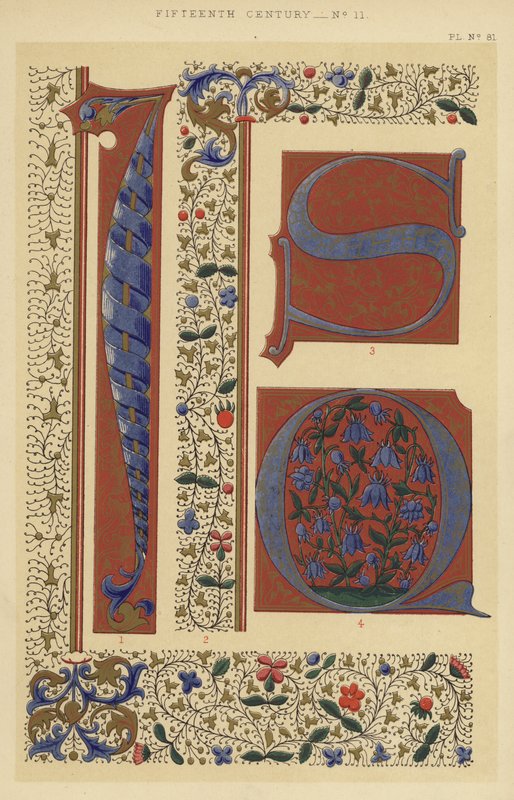 FIFTEENTH CENTURY — Nº 11.
PL. Nº 81
S
3
Q
1
2
4